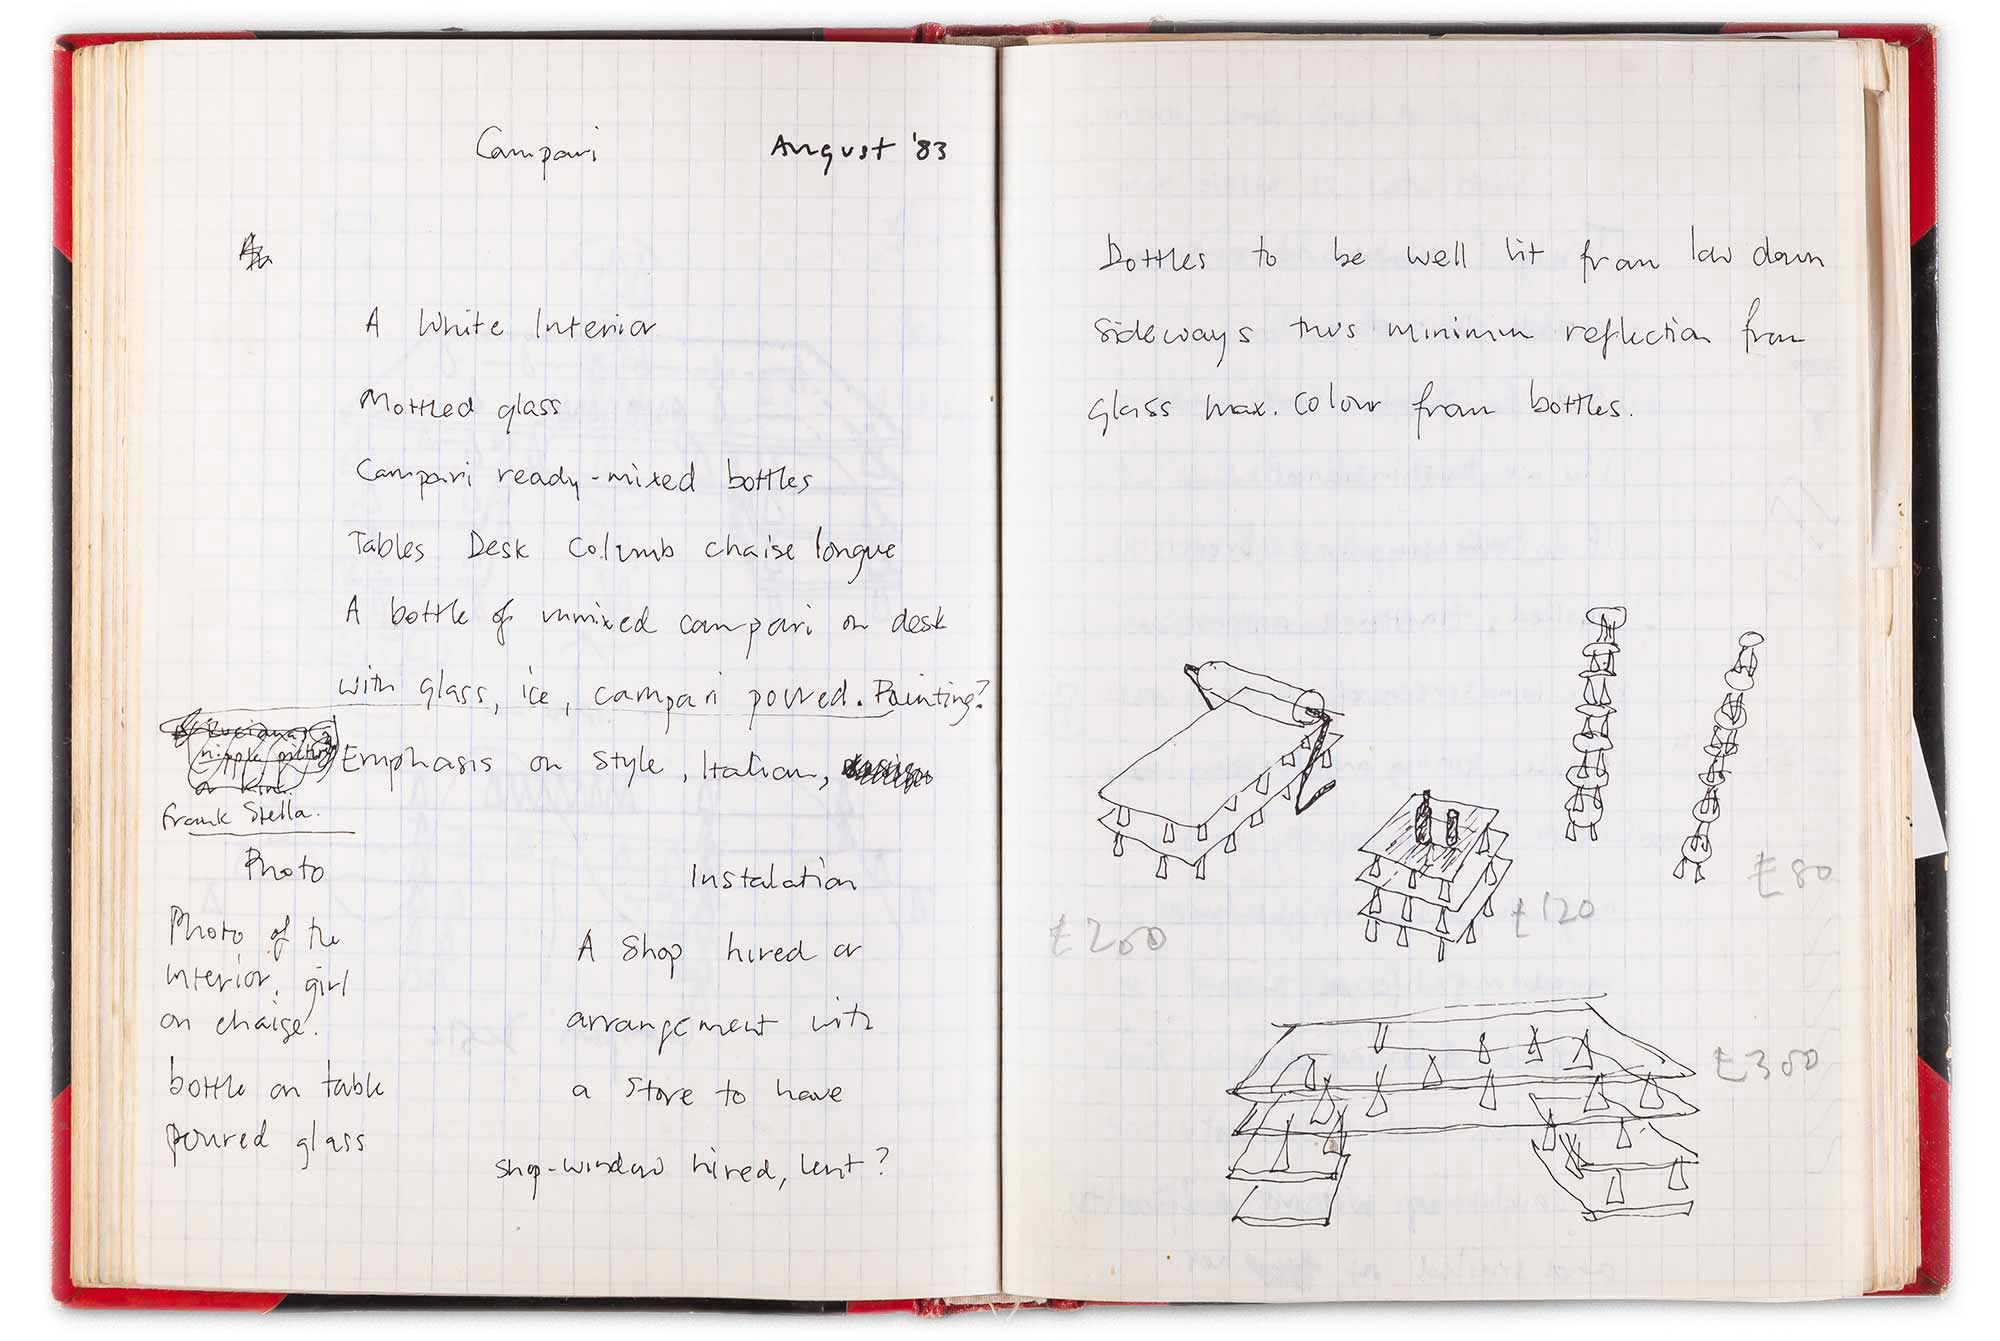 Campari August '83
A White Interior
Mottled glass
Campari ready-mixed bottles
Tables Desk Columb chaise longue
A bottle of unmixed campari on desk
with glass, ice, campari poured. Painting?
nipple picture
or Kirk.
Emphasis on Style, Italian,
Frank Stella.
Photo
Photo of the
interior, girl
on chaise.
bottle on table
poured glass
Instalation
A shop hired or
arrangement with
a store to have
shop-window hired, lent?
Bottles to be well lit from low down
sideways thus minimun reflection from
glass max. colour from bottles.
£80
£120
£200
£300